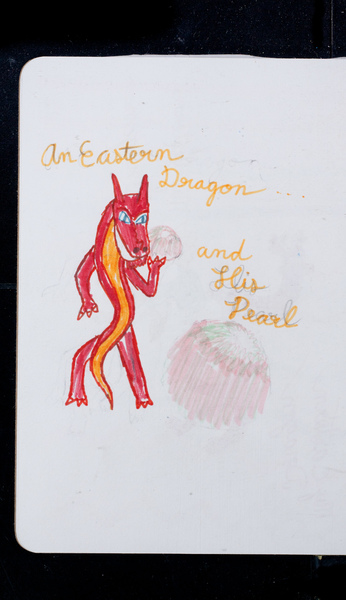 An Eastern
Dragon ...
and
His
Pearl